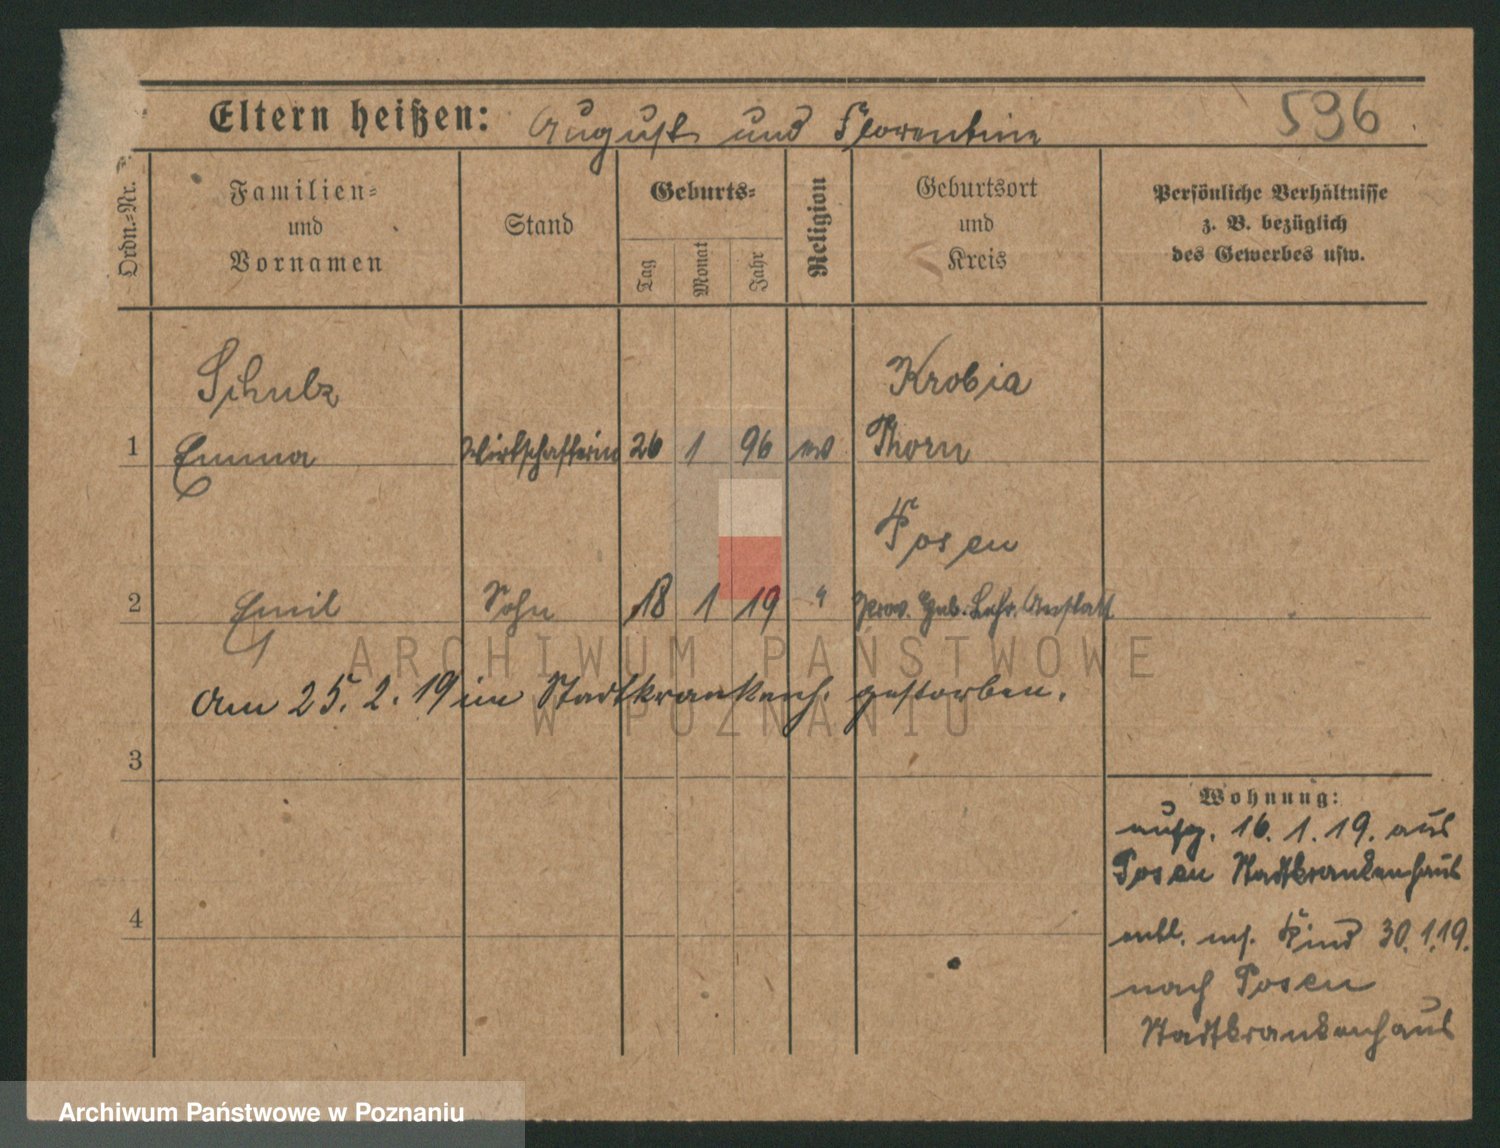 Eltern heißen: August und Florentine 596
Ordn.=Nr.
Familien=
und
Vornamen
Stand
Geburts=
Tag
Monat
Jahr
Religion
Geburtsort
und
Kreis
Persönliche Verhältnisse
z. B. bezüglich
des Gewerbes usw.
Schulz Krobia
1 Emma Wirtschafterin 26 1 96 ev Thorn
Posen
2 Emil Sohn 18 1 19 " Prov. Heb. Lehr. Anstalt
Am 25. 2. 19 im Stadtkrankenh. gestorben.
3
4
Wohnung:
aufg. 16. 1. 19. aus
Posen Stadtkrankenhaus
entl. m. Kind 30. 1. 19.
nach Posen
Stadtkrankenhaus
ARCHIWUM PAŃSTWOWE
W POZNANIU
Archiwum Państwowe w Poznaniu